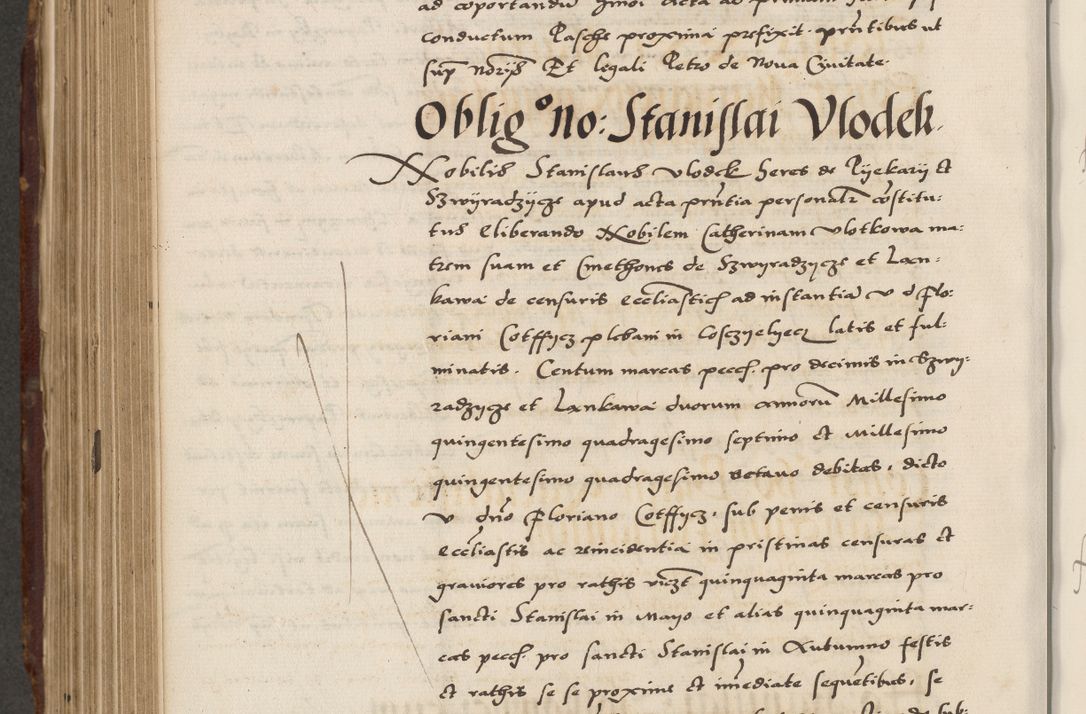 ad coportandu
conductum Pasche proxima prefixit. pñtibus ut
sup nõrijs Et legali Petro de Nova Civitate.
Oblig°no: Stanislai Vlodek.
Nobilis Stanislaus Vlodek heres de Pijekarij et
Szwijradzijcze apud acta pñtia personalr cõstitu:
tus Eliberando Nobilem Catherinam Vlotkowa ma:
trem suam et Cmethones de Szwijradzijcze et Lxn:
kawa de censuris ecclīasticis ad instantia V d Flo:
riani Cotffijcz plebani in Losczijelijecz latis et ful:
minatis. Centum marcas pecch. pro decimis in Szwij:
radzijcze et Lxnkawa duorum annorũ Millesimo
quingentesimo quadragesimo septimo et Millesimo
quingentesimo quadragesimo octavo debitas, dicto
V dño Floriano Cotffijcz, sub penis et censuris
eccliastis ac reincidentia in pristinas censuras et
graviores pro rathis vicz̃t quinquaginta marcas pro
sancti Stanislai in Mayo et alias quinquaginta mar:
cas pecch. pro sancti Stanislai in Autumno festis
et rathis se se proxime et im̃ediate sequẽtibus, se